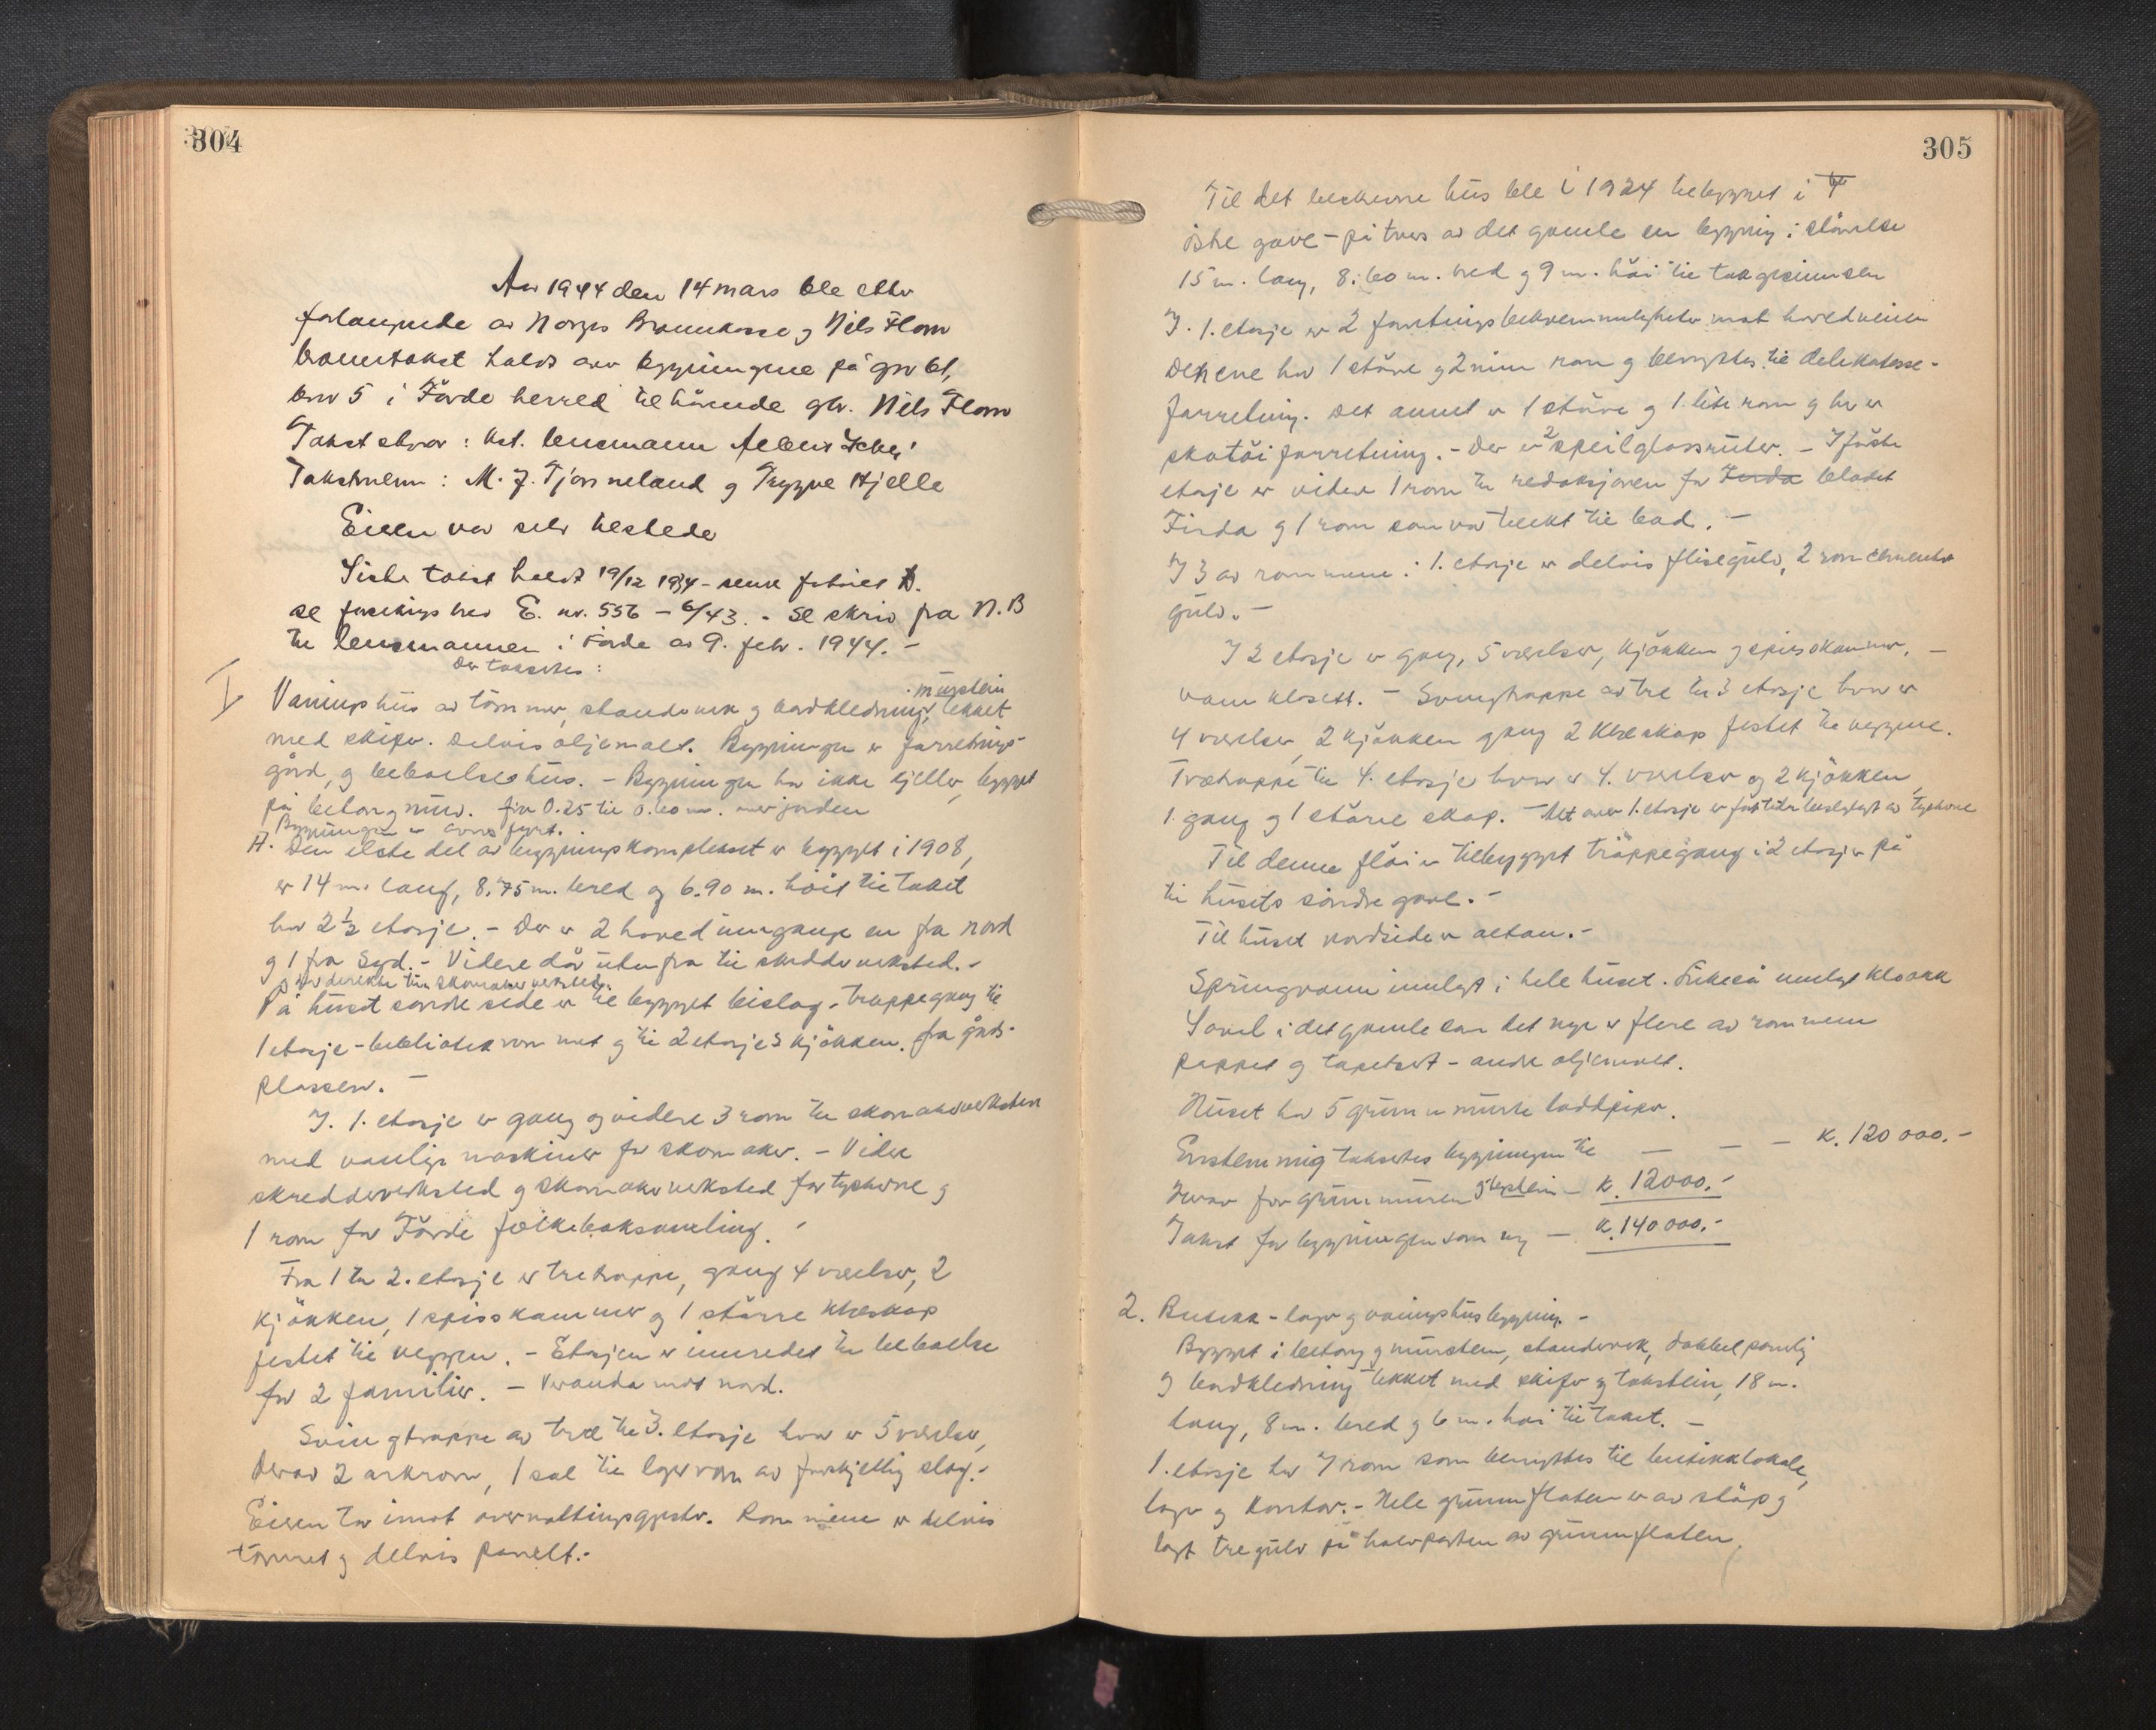 304
År 1944 den 14 mars ble etter
forlangende av Norges Brannkasse og Nils Flom
branntakst holdt over bygningene på gnr 61,
bnr 5 i Førde herred tilhørende gbr. Nils Flom
Takstskrer: kst. lensmann
Takstmenn: M. J. Tjønneland og Trygve Hjelle
Eieren var selv tilstede
Siste takst holdt 19/12 1934 -
se forsikrings brev E. nr. 556 - 6/43. - Se skriv fra N.B
til lensmannen i Førde av 9. febr. 1944. -
Der takseres:
I
murstein
Våningshus av tømmer, standverk og bordkledning, tekket
med skifer. Delvis oljemalt. Bygningen er forretnings-
gård, og beboelseshus. - Bygningen har ikke kjeller, bygget
på betongmur. fra 0.25 til 0.60 m. over jorden
Bygningen er ovnsfyrt.
A. Den elste del av bygningskomplekset er bygget i 1908,
er 14 m. lang, 8.75 m. bred og 6.90 m. høit til taket
har 2½ etasje. - Der er 2 hovedinngange en fra nord
og 1 fra Syd. - Videre dør utenfra til skredderverksted. -
og dør direkte til skomakerverksted.
På huset søndre side er tilbygget bislag - trappegang til
1 etasje - bibliotekrommet og til 2 etasjes kjøkken. fra gårds-
plassen. -
I. 1. etasje er gang og videre 3 rom til skomakerverksted
med vanlige maskiner for skomaker. - Videre
skredderverksted og skomakerverksted for tyskerne og
1 rom for Førde folkeboksamling.
Fra 1 til 2. etasje er tretrappe, gang 4 værelser, 2
kjøkken, 1 spisskammer og 1 større klæskap
festet til veggen. - Etasjen er innredet til beboelse
for 2 familier. - Veranda mot nord.
Svingtrappe av tre til 3. etasje hvor er 5 værelser,
derav 2 arkrom, 1 sal til lagerrom av forskjellig slag. -
Eieren tar imot overnattingsgjester. Rommene er delvis
tømret og delvis panelt. -
305
Til det beskrevne hus ble i 1924 tilbygget i
østre gavl - på tvers av det gamle en bygning i størrelse
15 m. lang, 8.60 m. bred og 9 m. høi til takgesimsen
I. 1. etasje er 2 forretningsbekvemmeligheter mot hovedveien
Den ene har 1 større og 2 min rom og benyttes til delikatesse-
forretning. Det annet er 1 større og 1 lite rom og her er
skotøiforretning. - Der er 2 speilglassruter. - I første
etasje er videre 1 rom til redaksjonen for Førda bladet
Firda og 1 rom som var tenkt til bad. -
I 3 av rommene i 1. etasje er delvis flisegulv, 2 rom cement
gulv. -
I 2 etasje er gang, 5 værelser, kjøkken og spisskammer. -
vann klosett. - Svingtrappe av tre til 3 etasje hvor er
4 værelser, 2 kjøkken gang 2 klæskap festet til veggene.
Trætrappe til 4. etasje hvor er 4. værelser og 2 kjøkken,
1. gang og 1 større skap. - Alt over 1. etasje er for tiden beslaglagt av tyskerne
Til denne fløi er tilbygget trappegang i 2 etasjer på
til husets søndre gavl. -
Til huset nordside er altan. -
Springvann innlagt i hele huset. Likeså innlagt kloakk
Såvel i det gamle som det nye er flere av rommene
pappet og tapetsert - andre oljemalt.
Huset har 5 grunnmurte loddpiper.
Enstemmig takseres bygningen til — — — K. 120 000.-
Herav for grunnmuren — K. 12000.-
Takst for bygningen som ny — K. 140 000.-
2. Butikk - lager og våningshusbygning. -
Bygget i betong og murstein, standverk, dobbel panelig
og bordkledning tekket med skifer og takstein, 18 m.
lang, 8 m. bred og 6 m. høi til taket. -
1. etasje har 7 rom som benyttes til butikklokale,
lager og kontor. - Hele grunnflaten er av støp og
lagt tregulv på halvparten av grunnflaten,